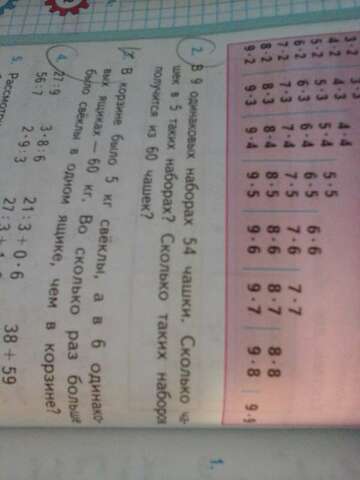 3·2
4·2 4·3 4·4
5·2 5·3 5·4 5·5
6·2 6·3 6·4 6·5 6·6
7·2 7·3 7·4 7·5 7·6 7·7
8·2 8·3 8·4 8·5 8·6 8·7 8·8
9·2 9·3 9·4 9·5 9·6 9·7 9·8 9·9
2. В 9 одинаковых наборах 54 чашки. Сколько ча-
шек в 5 таких наборах? Сколько таких наборо
получится из 60 чашек?
3. В корзине было 5 кг свёклы, а в 6 одинако-
вых ящиках — 60 кг. Во сколько раз больше
было свёклы в одном ящике, чем в корзине?
4. 27:9 3·8:6 21:3+0·6 38+59
56:7 2·9:3 27:3+1
5. Рассмотри
1.